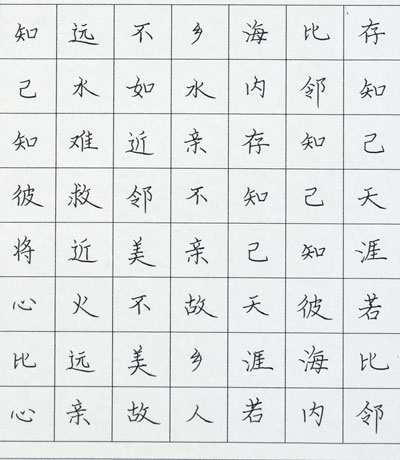 知己知彼将心比心
远水难救近火远亲
不如近邻美不美故
乡水亲不亲故乡人
海内存知己天涯若
比邻知己知彼海内
存知己天涯若比邻